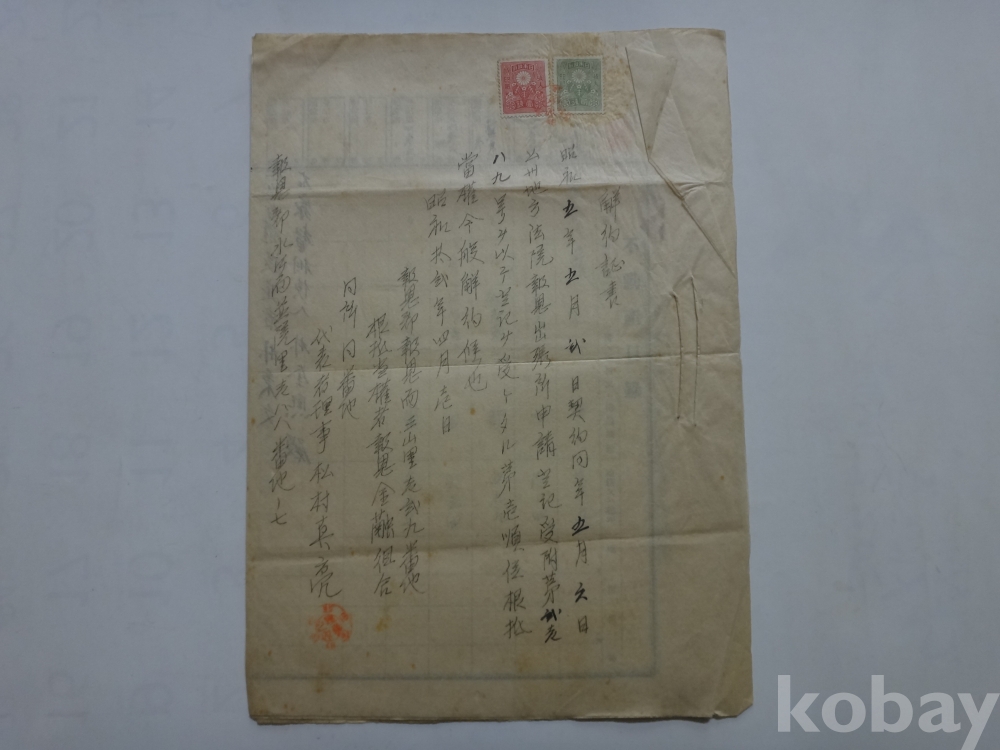 解約證書
昭和五年五月貳日契約同年五月六日
公州地方法院報恩出張所申請登記受附第貳壱
八九号ヲ以テ登記ヲ受ケタル第壱順位根抵
當権今般解約候也
昭和拾貳年四月壱日
報恩郡報恩面三山里壱貳九番地
根抵当権者報恩金融組合
同所同番地
代表者理事松村真亮
報恩郡水汗面 里壱八番地ノ七
kobay